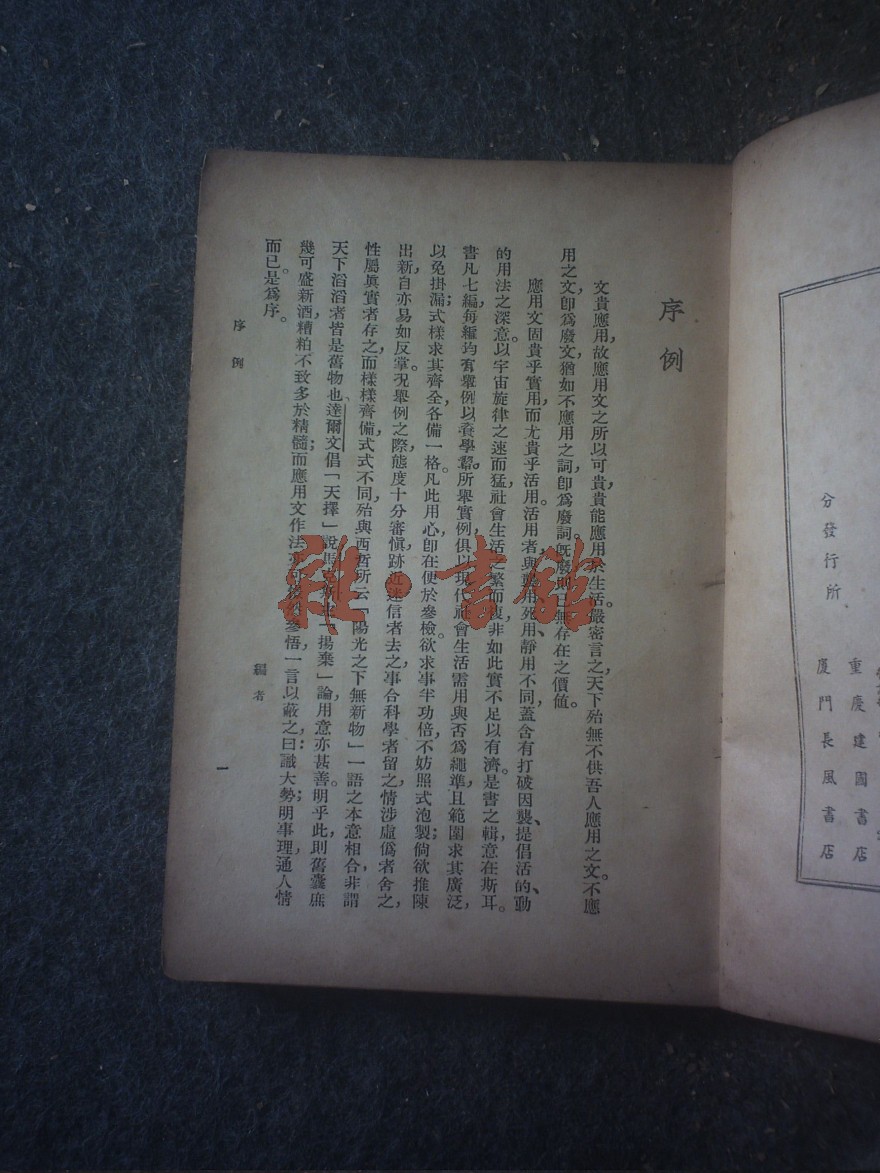 分發行所
重慶建國書店
廈門長風書店
序例
文貴應用，故應用文之所以可貴，貴能應用於生活。嚴密言之，天下殆無不供吾人應用之文。不應
用之文，卽爲廢文，猶如不應用之詞，卽爲廢詞。旣廢則已無存在之價值。
應用文固貴乎實用，而尤貴乎活用。活用者，與用、死用、靜用不同，蓋含有打破因襲、提倡活的、動
的用法之深意。以宇宙旋律之速而猛，社會生活之繁而複，非如此實不足以有濟。是書之輯，意在斯耳。
書凡七編，每編均有舉例，以養學。所舉實例，俱以現代社會生活需用與否爲繩準，且範圍求其廣泛，
以免掛漏；式樣求其齊全，各備一格。凡此用心，卽在便於參檢，欲求事半功倍，不妨照式泡製；倘欲推陳
出新，自亦易如反掌。況舉例之際，態度十分審愼，跡近迷信者去之，事合科學者留之，情涉虛僞者舍之，
性屬眞實者存之，而樣樣齊備，式式不同，殆與西哲所云「陽光之下無新物」一語之本意相合，非謂
天下滔滔者皆是舊物也。達爾文倡「天擇」說，馬「揚棄」論，用意亦甚善。明乎此，則舊囊庶
幾可盛新酒，糟粕不致多於精髓；而應用文作法亦可參悟，一言以蔽之，曰：識大勢，明事理，通人情
而已。是爲序。
編者
序例
一
雜·書館